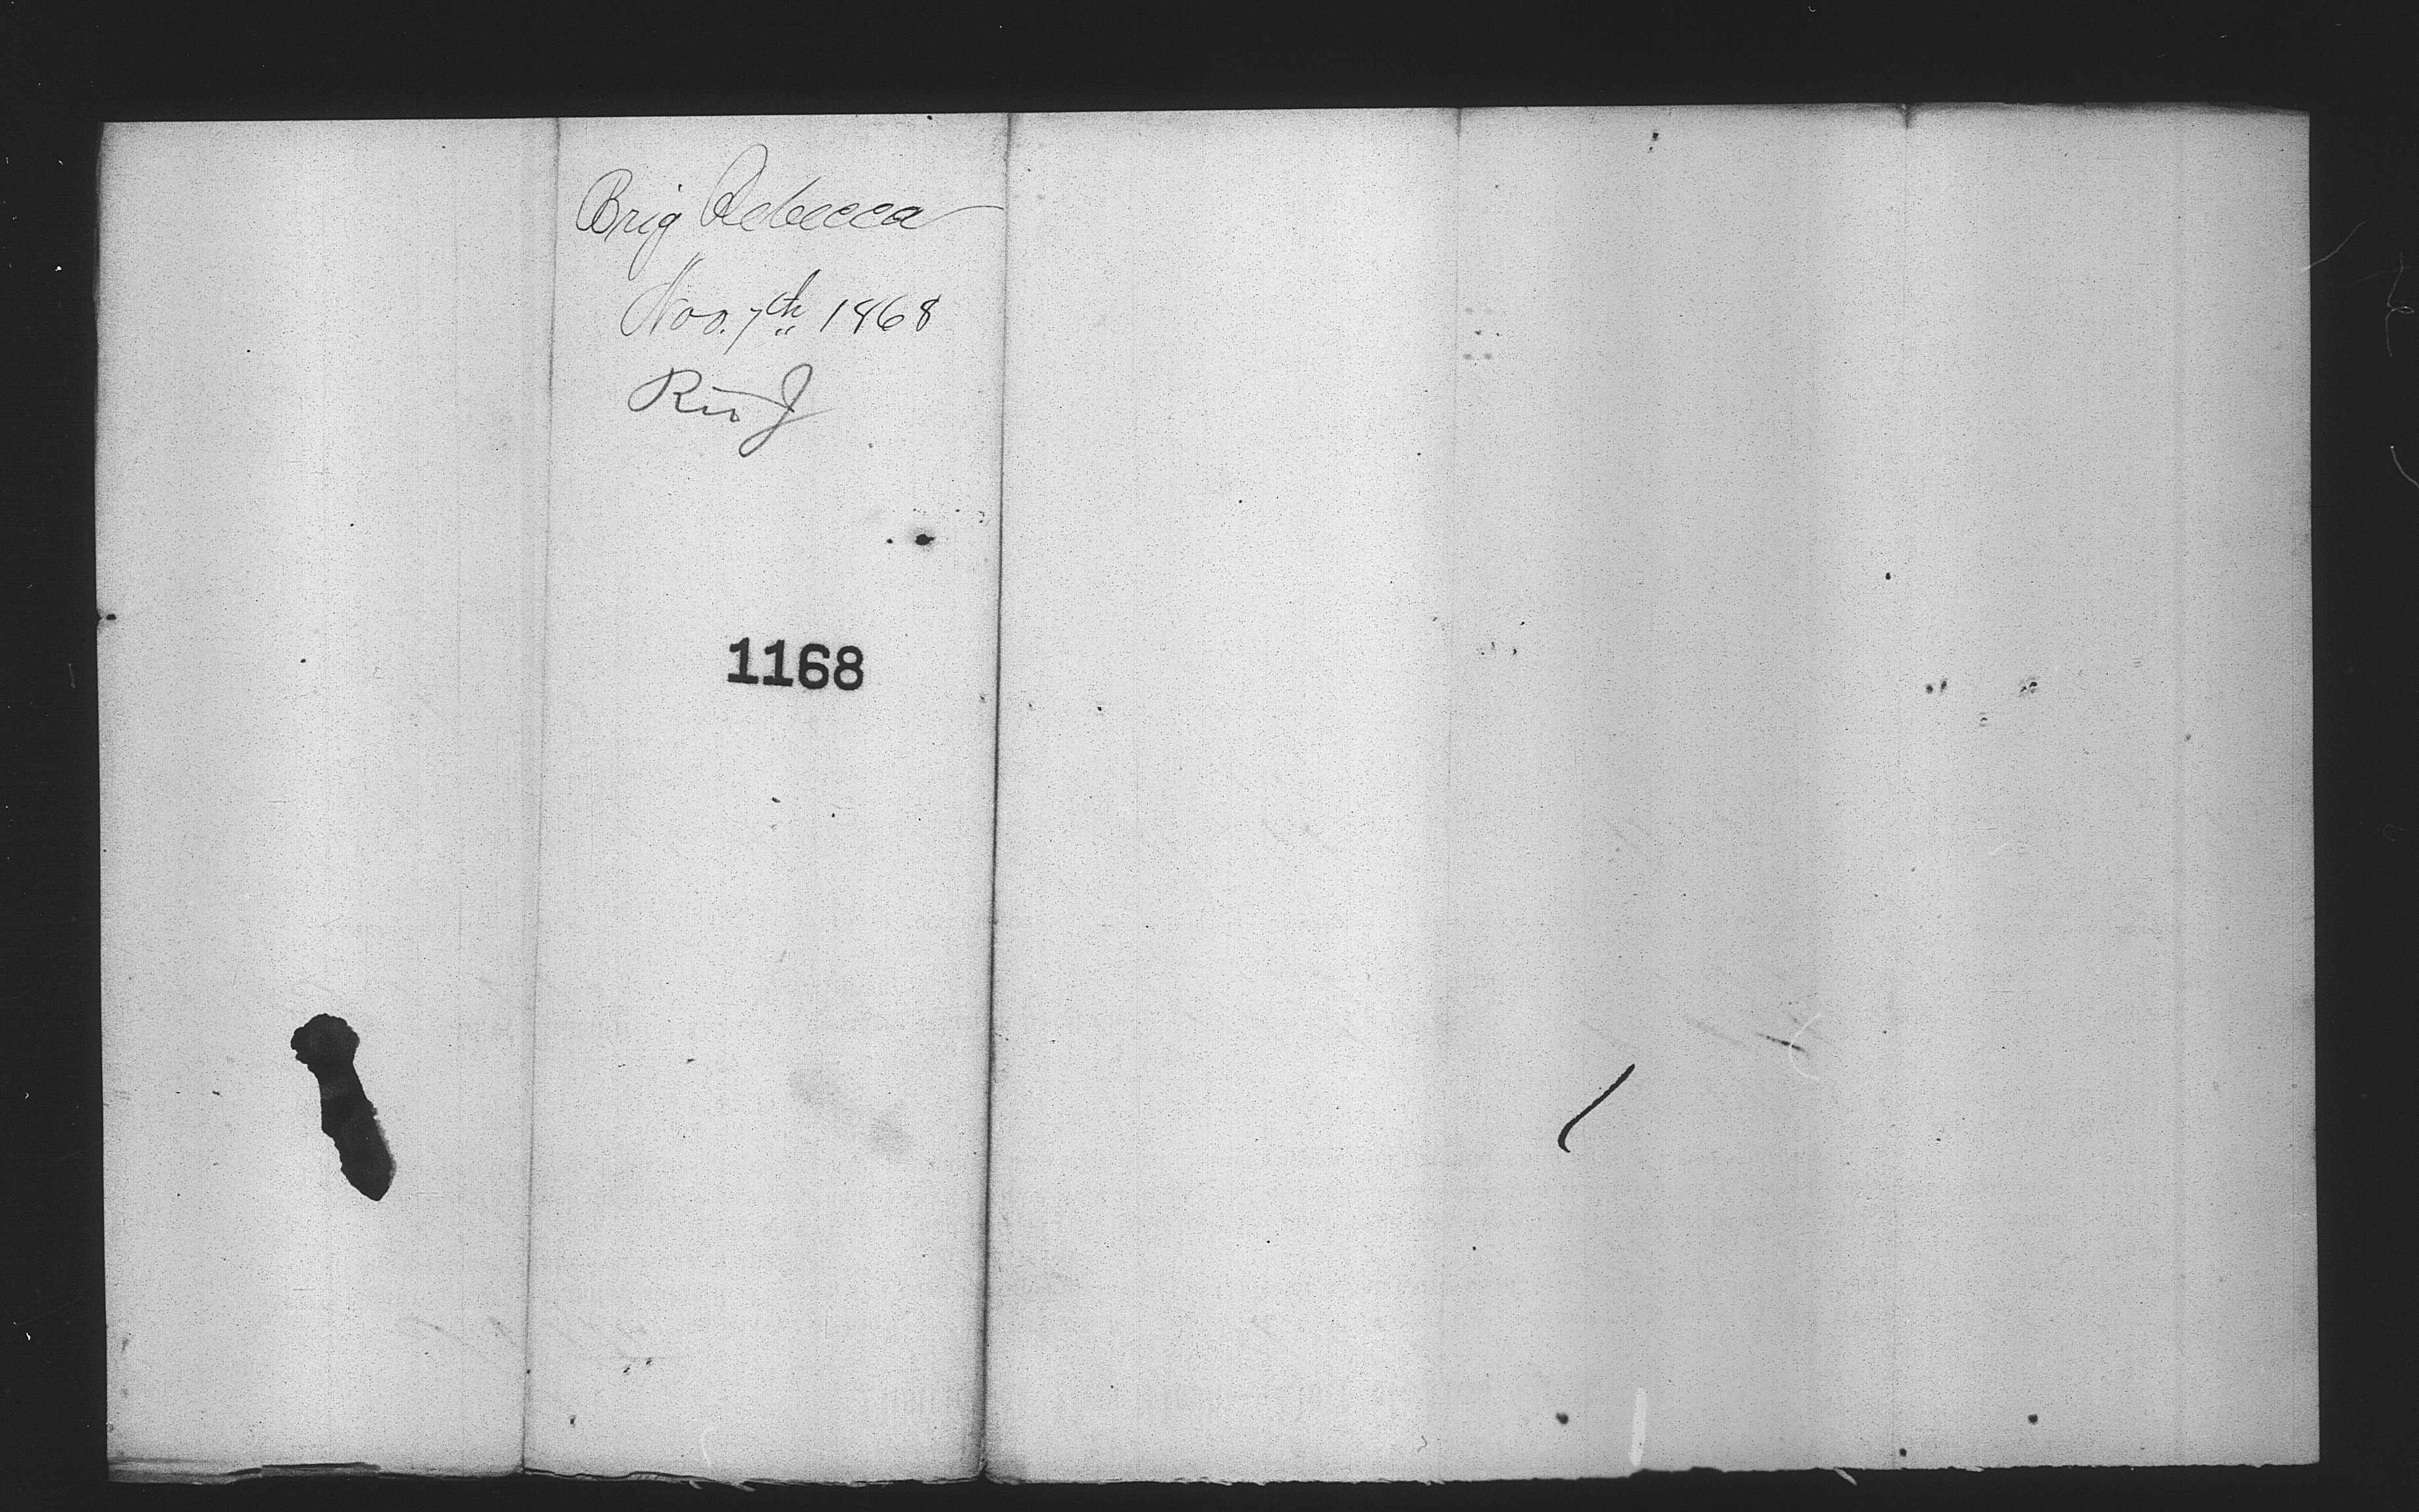 Brig Rebecca
Nov. 7th 1868
Rio J
1168